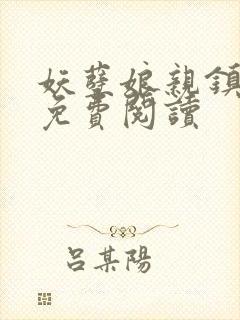 妖孽娘親鎮
免費閱讀
呂某陽